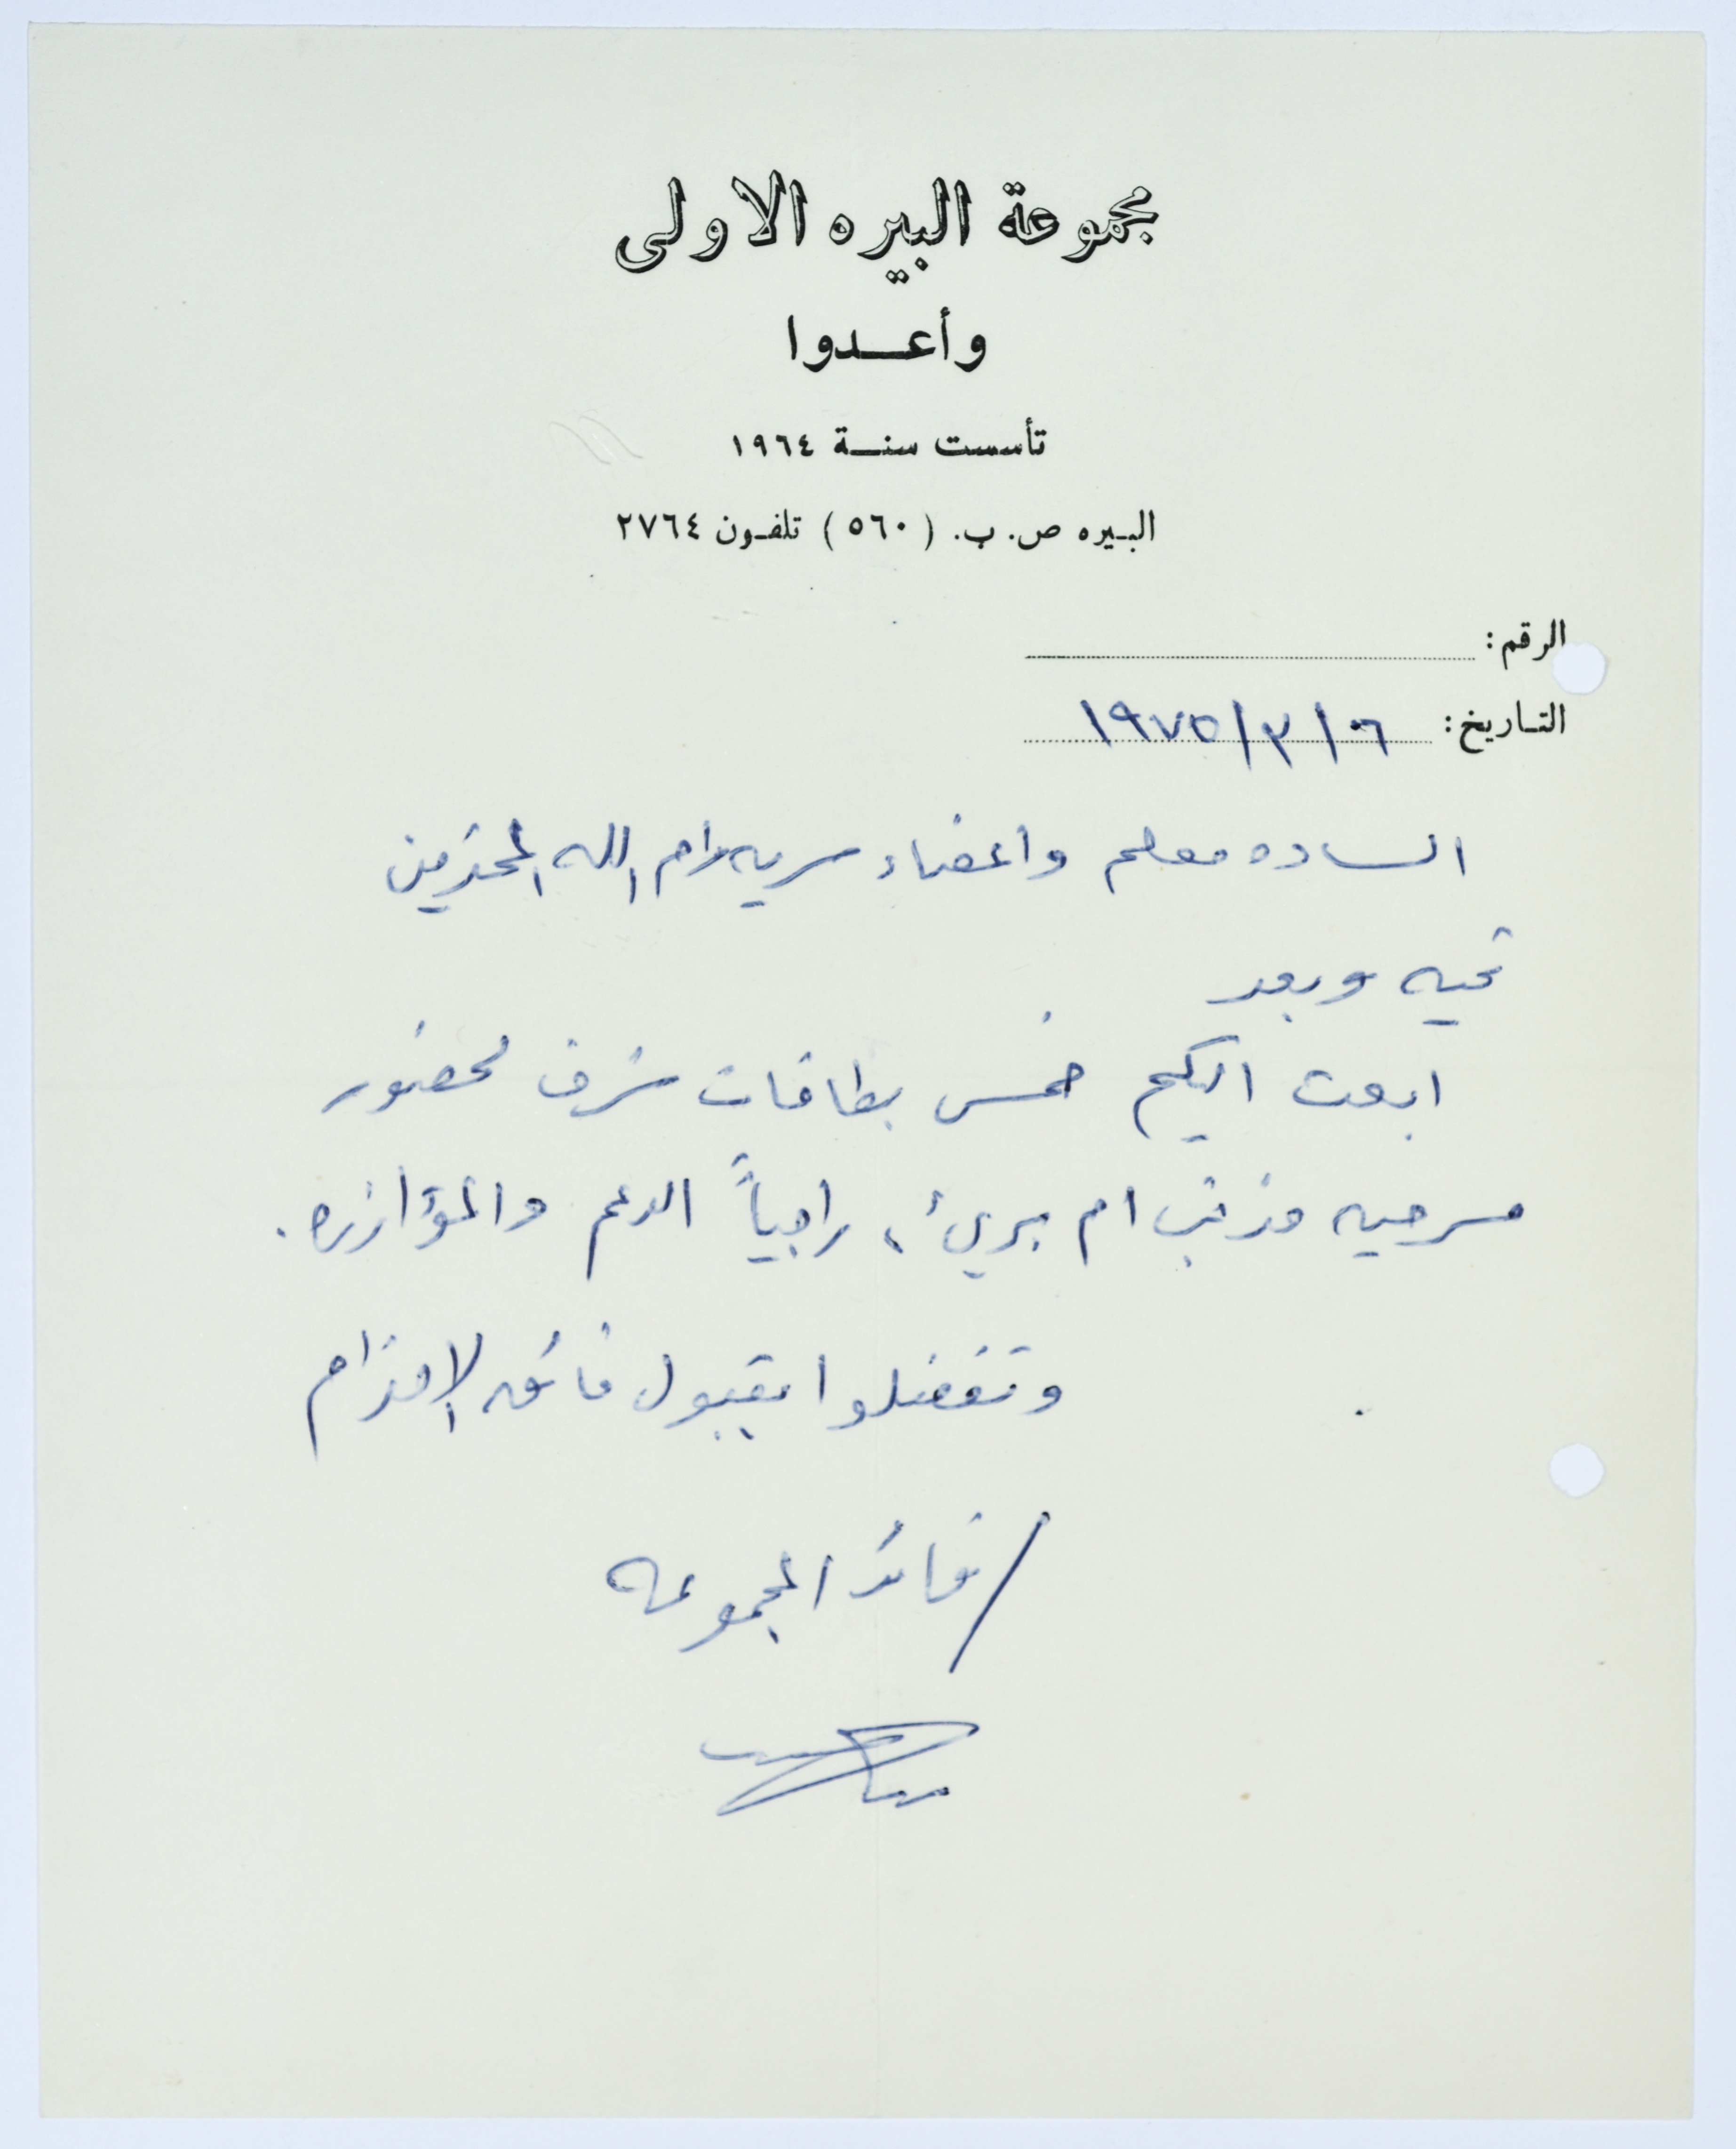 مجموعة البيره الاولى
وأعدوا
تأسست سنة ١٩٦٤
البيره ص. ب. (٥٦٠) تلفون ٢٧٦٤
الرقم:
التاريخ: ١٩٧٥/٣/٠٦
الساده معلم واعضاء سريه رام الله المحترمين
تحيه وبعد
ابعث اليكم خمس بطاقات شرف لحضور
مسرحيه مذنب ام بريء، راجياً الدعم والمؤازره.
وتفضلوا بقبول فائق الاحترام
/ قائد المجموعه